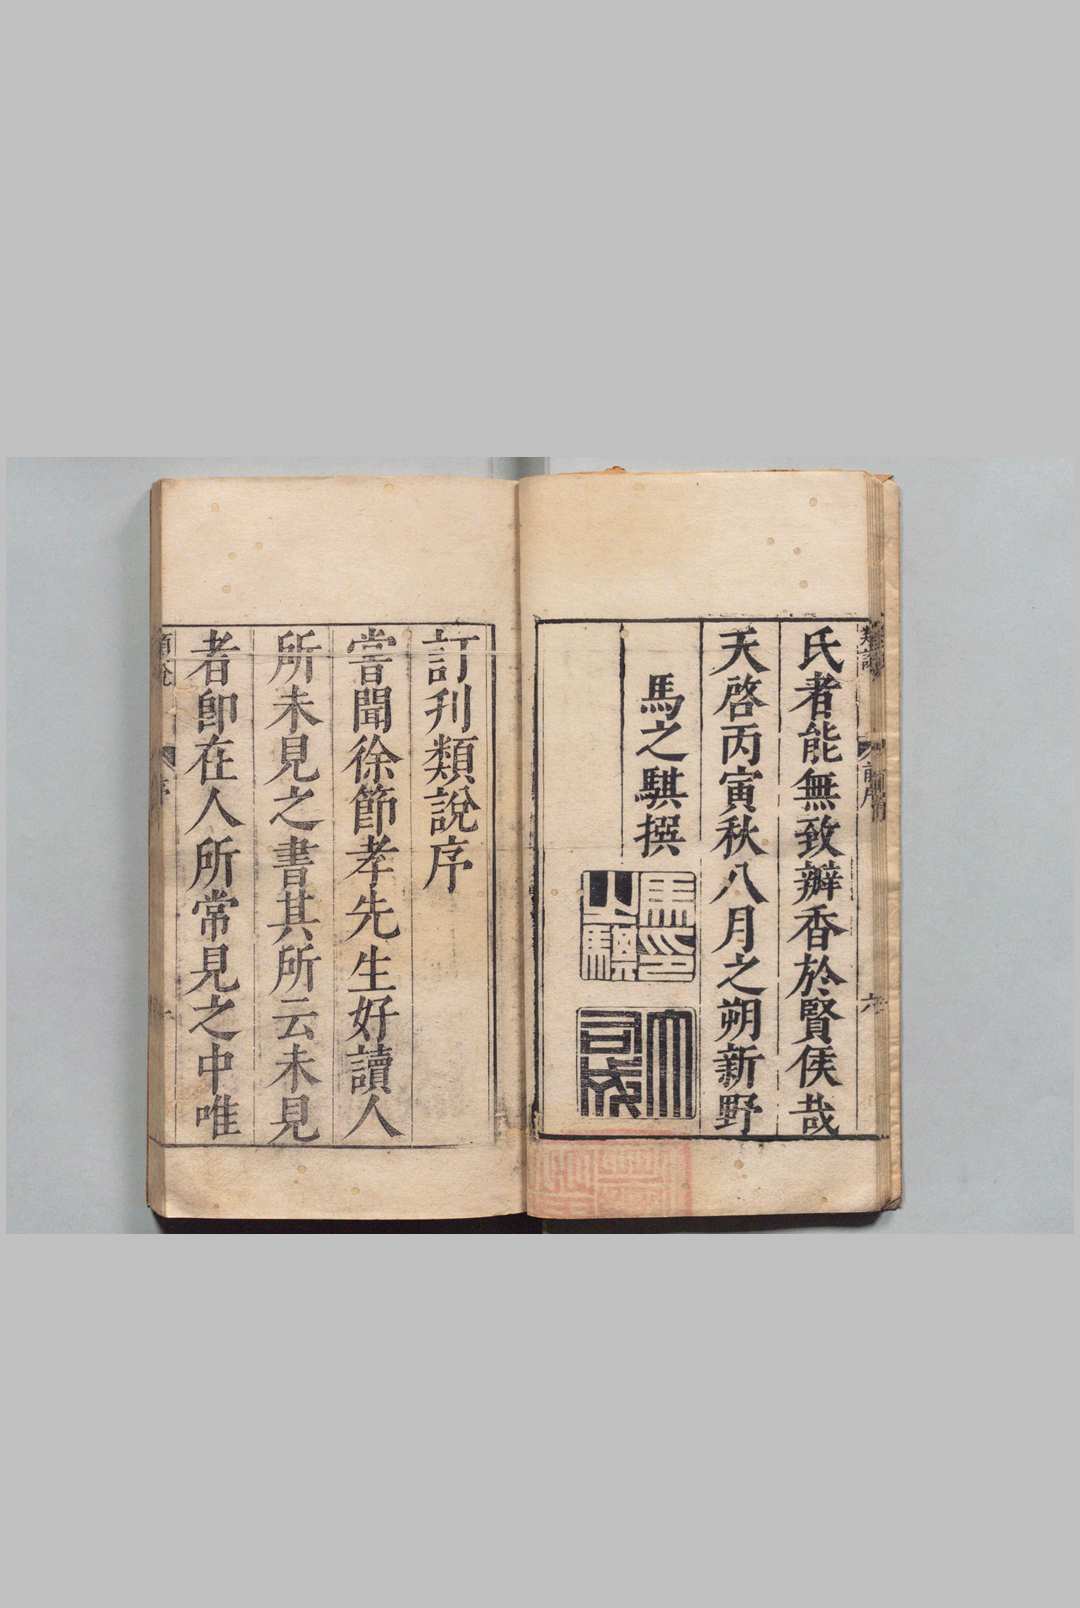 氏者能無致瓣香於賢侯哉
天啓丙寅秋八月之朔新野
馬之騏撰
馬印之騏
大司成
訂刊類說序
嘗聞徐節孝先生好讀人
所未見之書其所云未見
者卽在人所常見之中唯